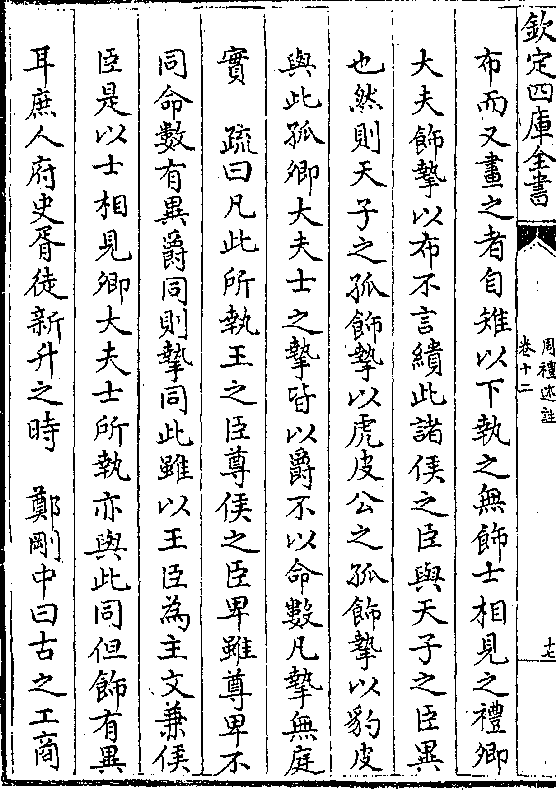 欽定四庫全書
周禮述註
卷十二
十七
布而又畫之者自雉以下執之無飾士相見之禮卿
大夫飾摯以布不言繢此諸侯之臣與天子之臣異
也然則天子之孤飾摯以虎皮公之孤飾摯以豹皮
與此孤卿大夫士之摯皆以爵不以命數凡摯無庭
實　疏曰凡此所執王之臣尊侯之臣卑雖尊卑不
同命數有異爵同則摯同此雖以王臣為主文兼侯
臣是以士相見卿大夫士所執亦與此同但飾有異
耳庶人府史胥徒新升之時　鄭剛中曰古之工商